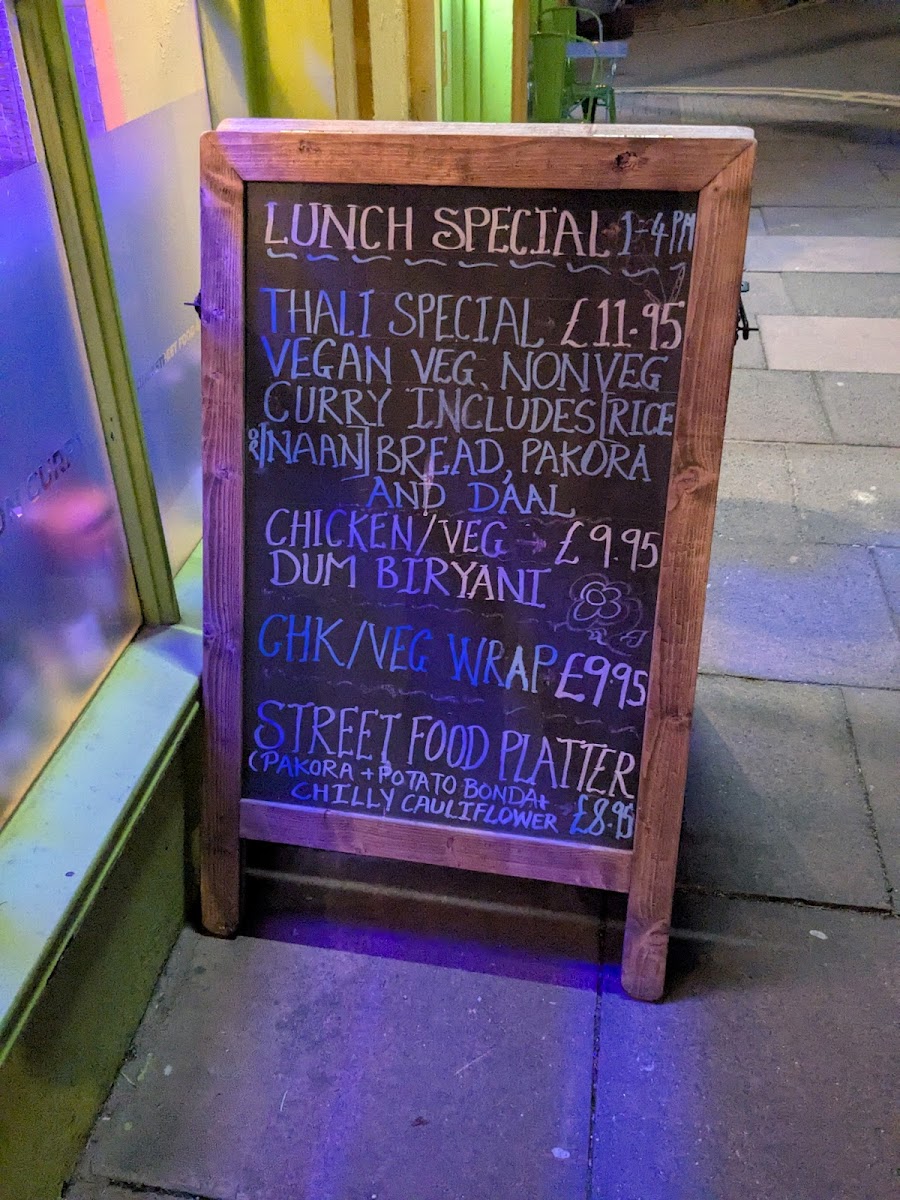 LUNCH SPECIAL 1-4PM
THALI SPECIAL £11.95
VEGAN VEG, NONVEG
CURRY INCLUDES [RICE
OR/NAAN] BREAD, PAKORA
AND DAAL
CHICKEN/VEG - £9.95
DUM BIRYANI
CHK/VEG WRAP £9.95
STREET FOOD PLATTER
(PAKORA + POTATO BONDA+
CHILLY CAULIFLOWER £8.95